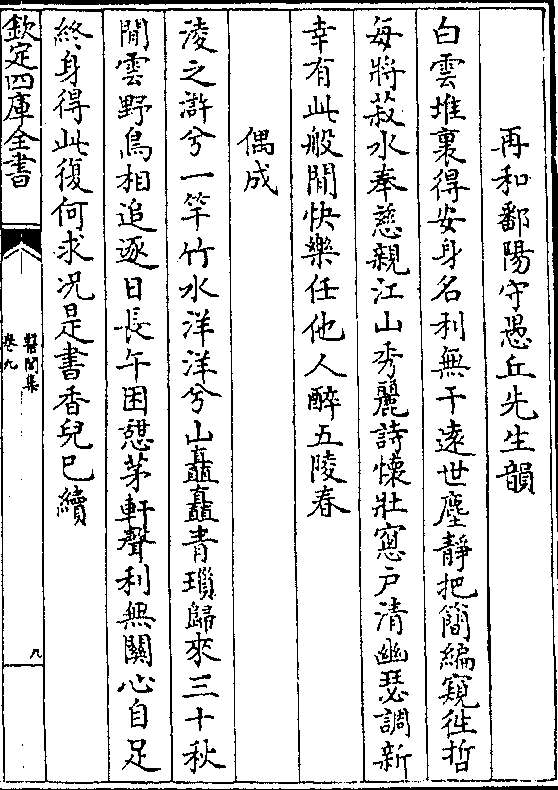 再和鄱陽守愚丘先生韻
白雲堆裏得安身名利無干遠世塵靜把簡編窺徃哲
每將菽水奉慈親江山秀麗詩懷壯窓戸清幽瑟調新
幸有此般閒快樂任他人醉五陵春
偶成
淩之滸兮一竿竹水洋洋兮山矗矗青瑣歸來三十秋
閒雲野鳥相追逐日長午困憇茅軒聲利無關心自足
終身得此復何求况是書香兒已續
欽定四庫全書
卷九
九